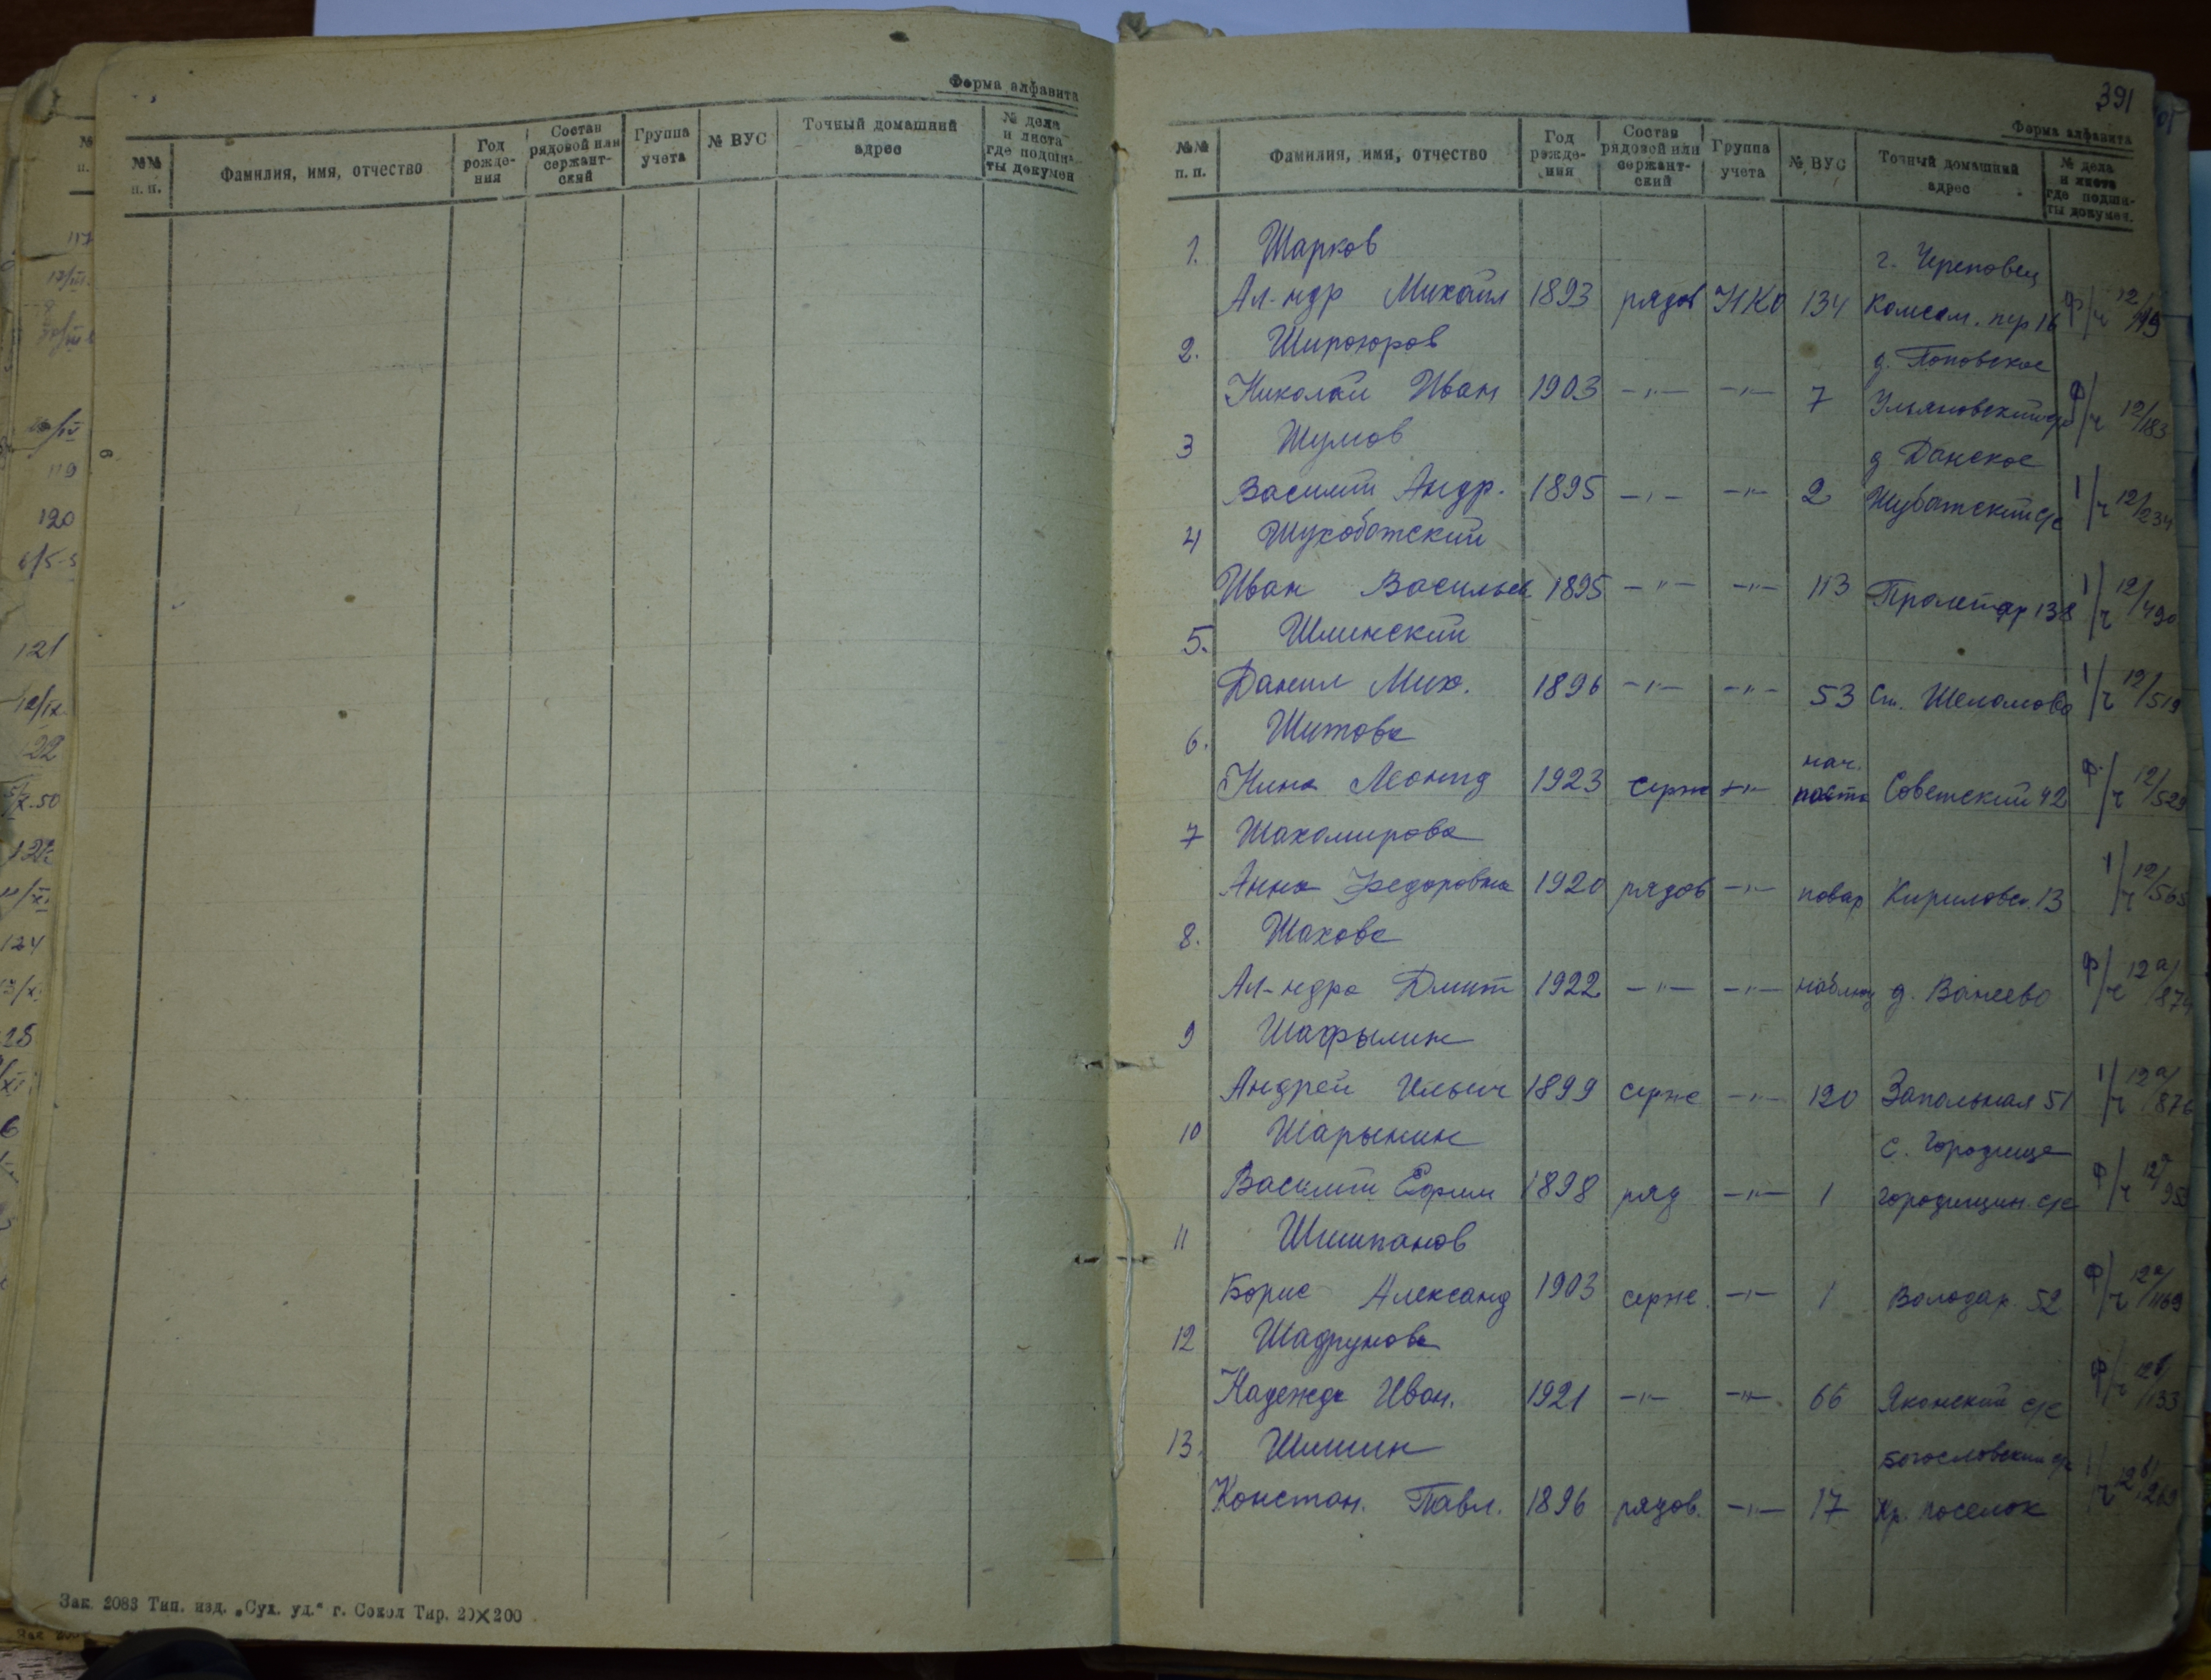 Форма алфавита
№№ п. п.
Фамилия, имя, отчество
Год рожде- ния
Состав рядовой или сержант- ский
Группа учета
№ ВУС
Точный домашний адрес
№ дела и листа где подши- ты докумен
Зак. 2083 Тип. изд. „Сух. уд.“ г. Сокол Тир. 20×200
391
Форма алфавита
№№ п. п.
Фамилия, имя, отчество
Год рожде- ния
Состав рядовой или сержант- ский
Группа учета
№ ВУС
Точный домашний адрес
№ дела и листа где подши- ты докумен.
1. Шарков г. Череповец
Ал-ндр Михайл 1893 рядов НКО 134 Комсом. пер 16 Ф/ч 12/119
2. д. Поповское
Николай Иван 1903 -"- -"- 7 Ульяновский с/с Ф/ч 12/183
3 Шумов д Донское
Василий Андр. 1895 -"- -"- 2 Шубатский с/с 1/ч 12/234
4 Шухободский
Иван Васильев. 1895 -"- -"- 113 Пролетар 138 1/ч 12/490
5. Шлинский
Данил Мих. 1896 -"- -"- 53 Ст. Шеломово 1/ч 12/519
6. Шитова нач.
Нина Леонид 1923 серж -"- поста Советский 42 Ф/ч 12/529
7 Шахомирова
Анна Федоровна 1920 рядов -"- повар Кириловск. 13 1/ч 12/565
8. Шахова
Ал-ндра Дмит 1922 -"- -"- наблюд д. Ванеево Ф/ч 12а/874
9 Шафылин
Андрей Ильич 1899 серж -"- 120 Запольная 51 1/ч 12а/876
10 Шарынин с. Городище
Василий Ефим 1898 ряд -"- 1 Городищен. с/с Ф/ч
11 Шишпанов
Борис Александ 1903 серж. -"- 1 Володар. 52 Ф/ч 12а/1169
12 Шадрунова
Надежда Иван. 1921 -"- -"- 66 Яконский с/с Ф/ч 12б/133
13. Шишин Богословский с/с
Констан. Павл. 1896 рядов. -"- 17 Кр. поселок